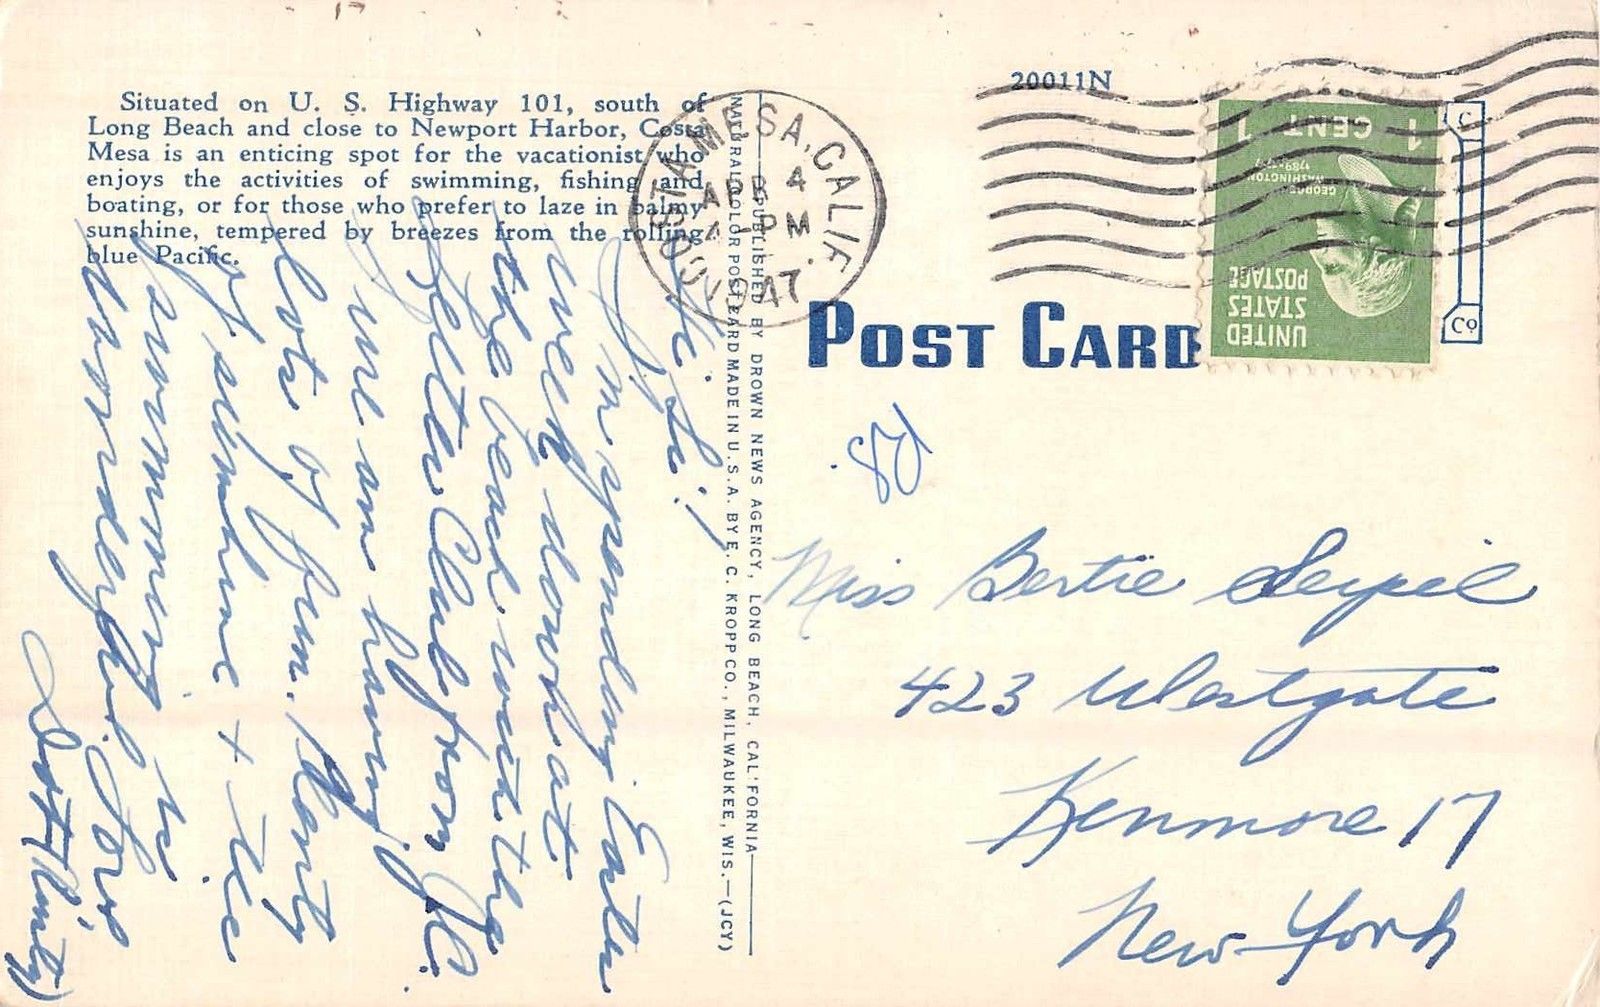 Situated on U. S. Highway 101, south of
Long Beach and close to Newport Harbor, Costa
Mesa is an enticing spot for the vacationist who
enjoys the activities of swimming, fishing and
boating, or for those who prefer to laze in balmy
sunshine, tempered by breezes from the rolling
blue Pacific.
Hi:
I'm spending Easter
week down at
the beach with the
Delta Club from J.C.
we are having
lots of fun. Plenty
of sunshine & the
swimming is
wonderful. Love
Dot
NATURAL COLOR POST CARD MADE IN U.S.A. BY E. C. KROPP CO., MILWAUKEE, WIS.—(JCY)
PUBLISHED BY DROWN NEWS AGENCY, LONG BEACH, CAL'FORNIA
COSTA MESA, CALIF.
APR 4
4 - PM
1947
20011N
POST CARD
C
Co
UNITED
STATES
POSTAGE
GEORGE
WASHINGTON
1789-97
1 CENT 1
Miss Bertie Seypil
423 Westgate
Kenmore 17
New York